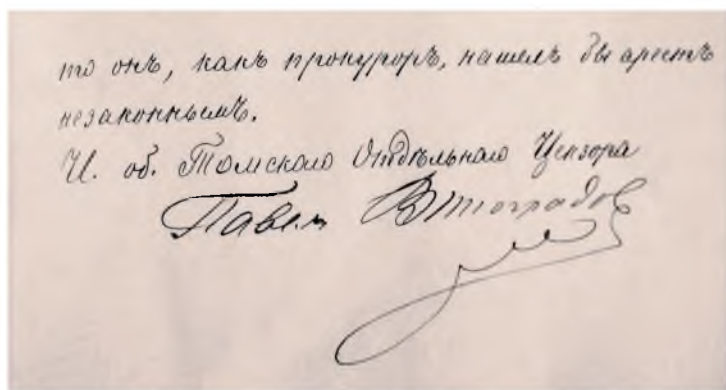 то онъ, какъ прокуроръ, нашелъ бы арестъ
незаконнымъ.
И. об. Томскаго Отдѣльнаго Цензора
Павел Виноградов